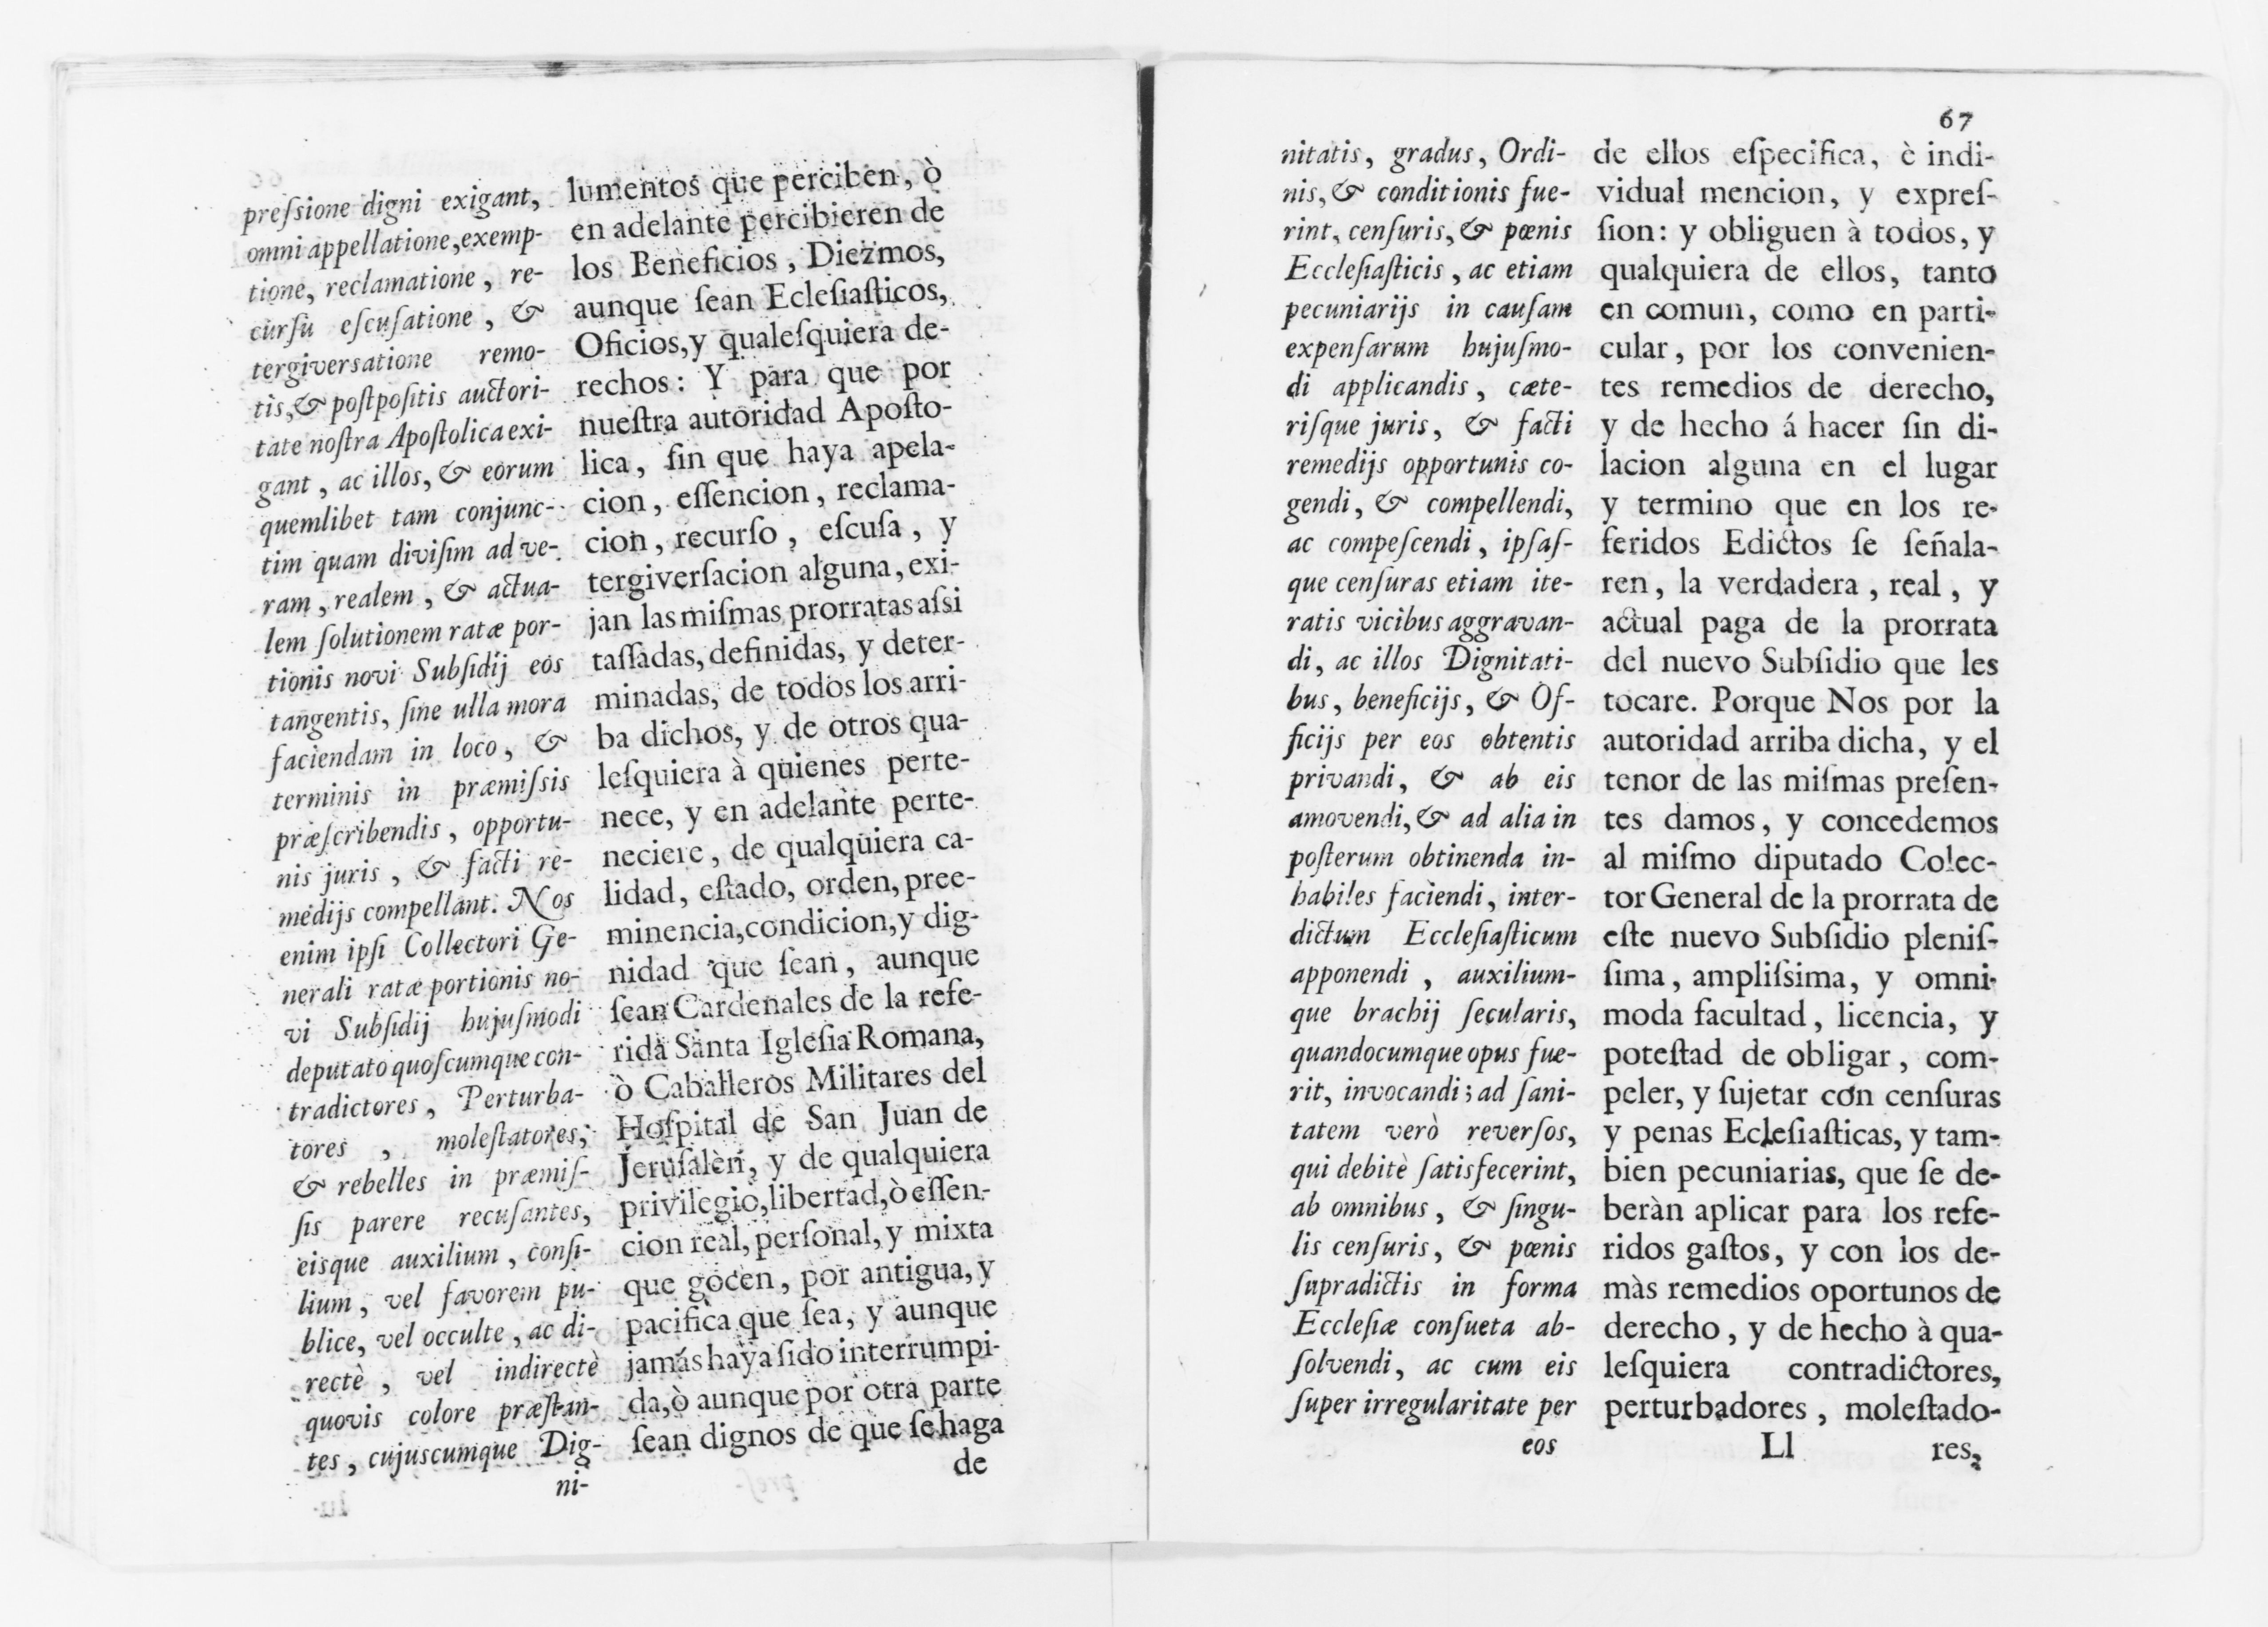 preſsione digni exigant,
omni appellatione, exemp-
tione, reclamatione, re-
curſu eſcuſatione, &
tergiverſatione remo-
tis, & poſtpoſitis auctori-
tate noſtra Apoſtolica exi-
gant, ac illos, & eorum
quemlibet tam conjunc-
tim quam diviſim ad ve-
ram, realem, & actua-
lem ſolutionem ratæ por-
tionis novi Subſidij eos
tangentis, ſine ulla mora
faciendam in loco, &
terminis in præmiſsis
præſcribendis, opportu-
nis juris, & facti re-
medijs compellant. Nos
enim ipſi Collectori Ge-
nerali ratæ portionis no-
vi Subſidij hujuſmodi
deputato quoſcumque con-
tradictores, Perturba-
tores, moleſtatores,
& rebelles in præmiſ-
ſis parere recuſantes,
eisque auxilium, conſi-
lium, vel favorem pu-
blice, vel occulte, ac di-
rectè, vel indirectè
quovis colore præſtan-
tes, cujuscumque Dig-
ni-
lumentos que perciben, ò
en adelante percibieren de
los Beneficios, Diezmos,
aunque ſean Ecleſiaſticos,
Oficios, y qualeſquiera de-
rechos: Y para que por
nueſtra autoridad Apoſto-
lica, ſin que haya apela-
cion, eſſencion, reclama-
cion, recurſo, eſcuſa, y
tergiverſacion alguna, exi-
jan las miſmas prorratas aſsi
taſſadas, definidas, y deter-
minadas, de todos los arri-
ba dichos, y de otros qua-
leſquiera à quienes perte-
nece, y en adelante perte-
neciere, de qualquiera ca-
lidad, eſtado, orden, pree-
minencia, condicion, y dig-
nidad que ſean, aunque
ſean Cardenales de la refe-
rida Santa Igleſia Romana,
ò Caballeros Militares del
Hoſpital de San Juan de
Jeruſalèn, y de qualquiera
privilegio, libertad, ò eſſen-
cion real, perſonal, y mixta
que gocen, por antigua, y
pacifica que ſea, y aunque
jamás haya ſido interrumpi-
da, ò aunque por otra parte
ſean dignos de que ſe haga
de
67
nitatis, gradus, Ordi-
nis, & conditionis fue-
rint, cenſuris, & pœnis
Eccleſiaſticis, ac etiam
pecuniarijs in cauſam
expenſarum hujuſmo-
di applicandis, cæte-
riſque juris, & facti
remedijs opportunis co-
gendi, & compellendi,
ac compeſcendi, ipſaſ-
que cenſuras etiam ite-
ratis vicibus aggravan-
di, ac illos Dignitati-
bus, beneficijs, & Of-
ficijs per eos obtentis
privandi, & ab eis
amovendi, & ad alia in
poſterum obtinenda in-
habiles faciendi, inter-
dictum Eccleſiaſticum
apponendi, auxilium-
que brachij ſecularis,
quandocumque opus fue-
rit, invocandi; ad ſani-
tatem verò reverſos,
qui debitè ſatisfecerint,
ab omnibus, & ſingu-
lis cenſuris, & pœnis
ſupradictis in forma
Eccleſiæ conſueta ab-
ſolvendi, ac cum eis
ſuper irregularitate per
eos
de ellos eſpecifica, è indi-
vidual mencion, y expreſ-
ſion: y obliguen à todos, y
qualquiera de ellos, tanto
en comun, como en parti-
cular, por los convenien-
tes remedios de derecho,
y de hecho á hacer ſin di-
lacion alguna en el lugar
y termino que en los re-
feridos Edictos ſe ſeñala-
ren, la verdadera, real, y
actual paga de la prorrata
del nuevo Subſidio que les
tocare. Porque Nos por la
autoridad arriba dicha, y el
tenor de las miſmas preſen-
tes damos, y concedemos
al miſmo diputado Colec-
tor General de la prorrata de
eſte nuevo Subſidio pleniſ-
ſima, ampliſsima, y omni-
moda facultad, licencia, y
poteſtad de obligar, com-
peler, y ſujetar con cenſuras
y penas Ecleſiaſticas, y tam-
bien pecuniarias, que ſe de-
beràn aplicar para los refe-
ridos gaſtos, y con los de-
màs remedios oportunos de
derecho, y de hecho à qua-
leſquiera contradictores,
perturbadores, moleſtado-
Ll res,